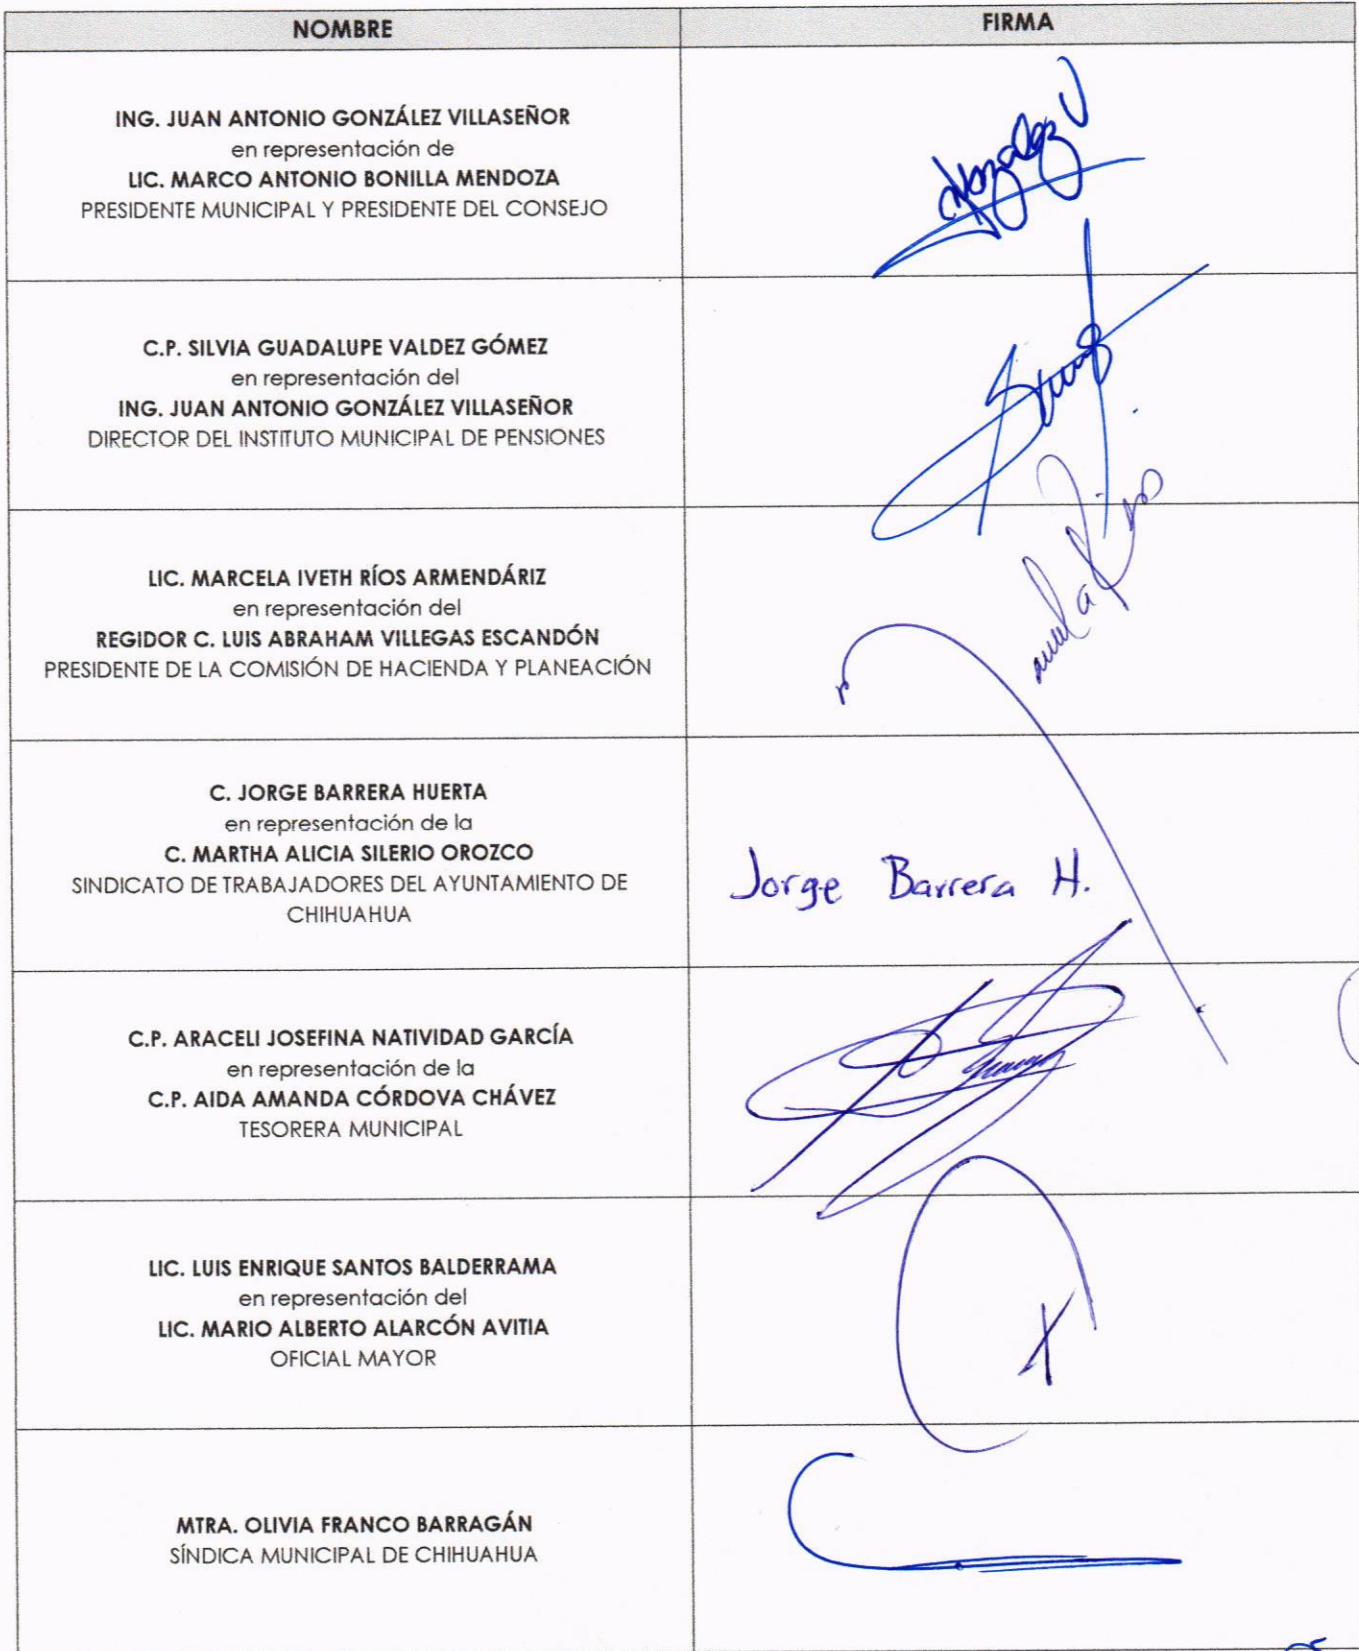 NOMBRE FIRMA
ING. JUAN ANTONIO GONZÁLEZ VILLASEÑOR
en representación de
LIC. MARCO ANTONIO BONILLA MENDOZA
PRESIDENTE MUNICIPAL Y PRESIDENTE DEL CONSEJO
C.P. SILVIA GUADALUPE VALDEZ GÓMEZ
en representación del
ING. JUAN ANTONIO GONZÁLEZ VILLASEÑOR
DIRECTOR DEL INSTITUTO MUNICIPAL DE PENSIONES
LIC. MARCELA IVETH RÍOS ARMENDÁRIZ
en representación del
REGIDOR C. LUIS ABRAHAM VILLEGAS ESCANDÓN
PRESIDENTE DE LA COMISIÓN DE HACIENDA Y PLANEACIÓN
C. JORGE BARRERA HUERTA
en representación de la
C. MARTHA ALICIA SILERIO OROZCO
SINDICATO DE TRABAJADORES DEL AYUNTAMIENTO DE
CHIHUAHUA
Jorge Barrera H.
C.P. ARACELI JOSEFINA NATIVIDAD GARCÍA
en representación de la
C.P. AIDA AMANDA CÓRDOVA CHÁVEZ
TESORERA MUNICIPAL
LIC. LUIS ENRIQUE SANTOS BALDERRAMA
en representación del
LIC. MARIO ALBERTO ALARCÓN AVITIA
OFICIAL MAYOR
MTRA. OLIVIA FRANCO BARRAGÁN
SÍNDICA MUNICIPAL DE CHIHUAHUA